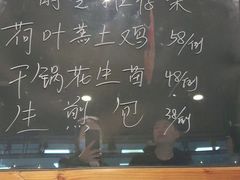 荷叶蒸土鸡 58/例
干锅花生苗 48/例
生煎包 38/例